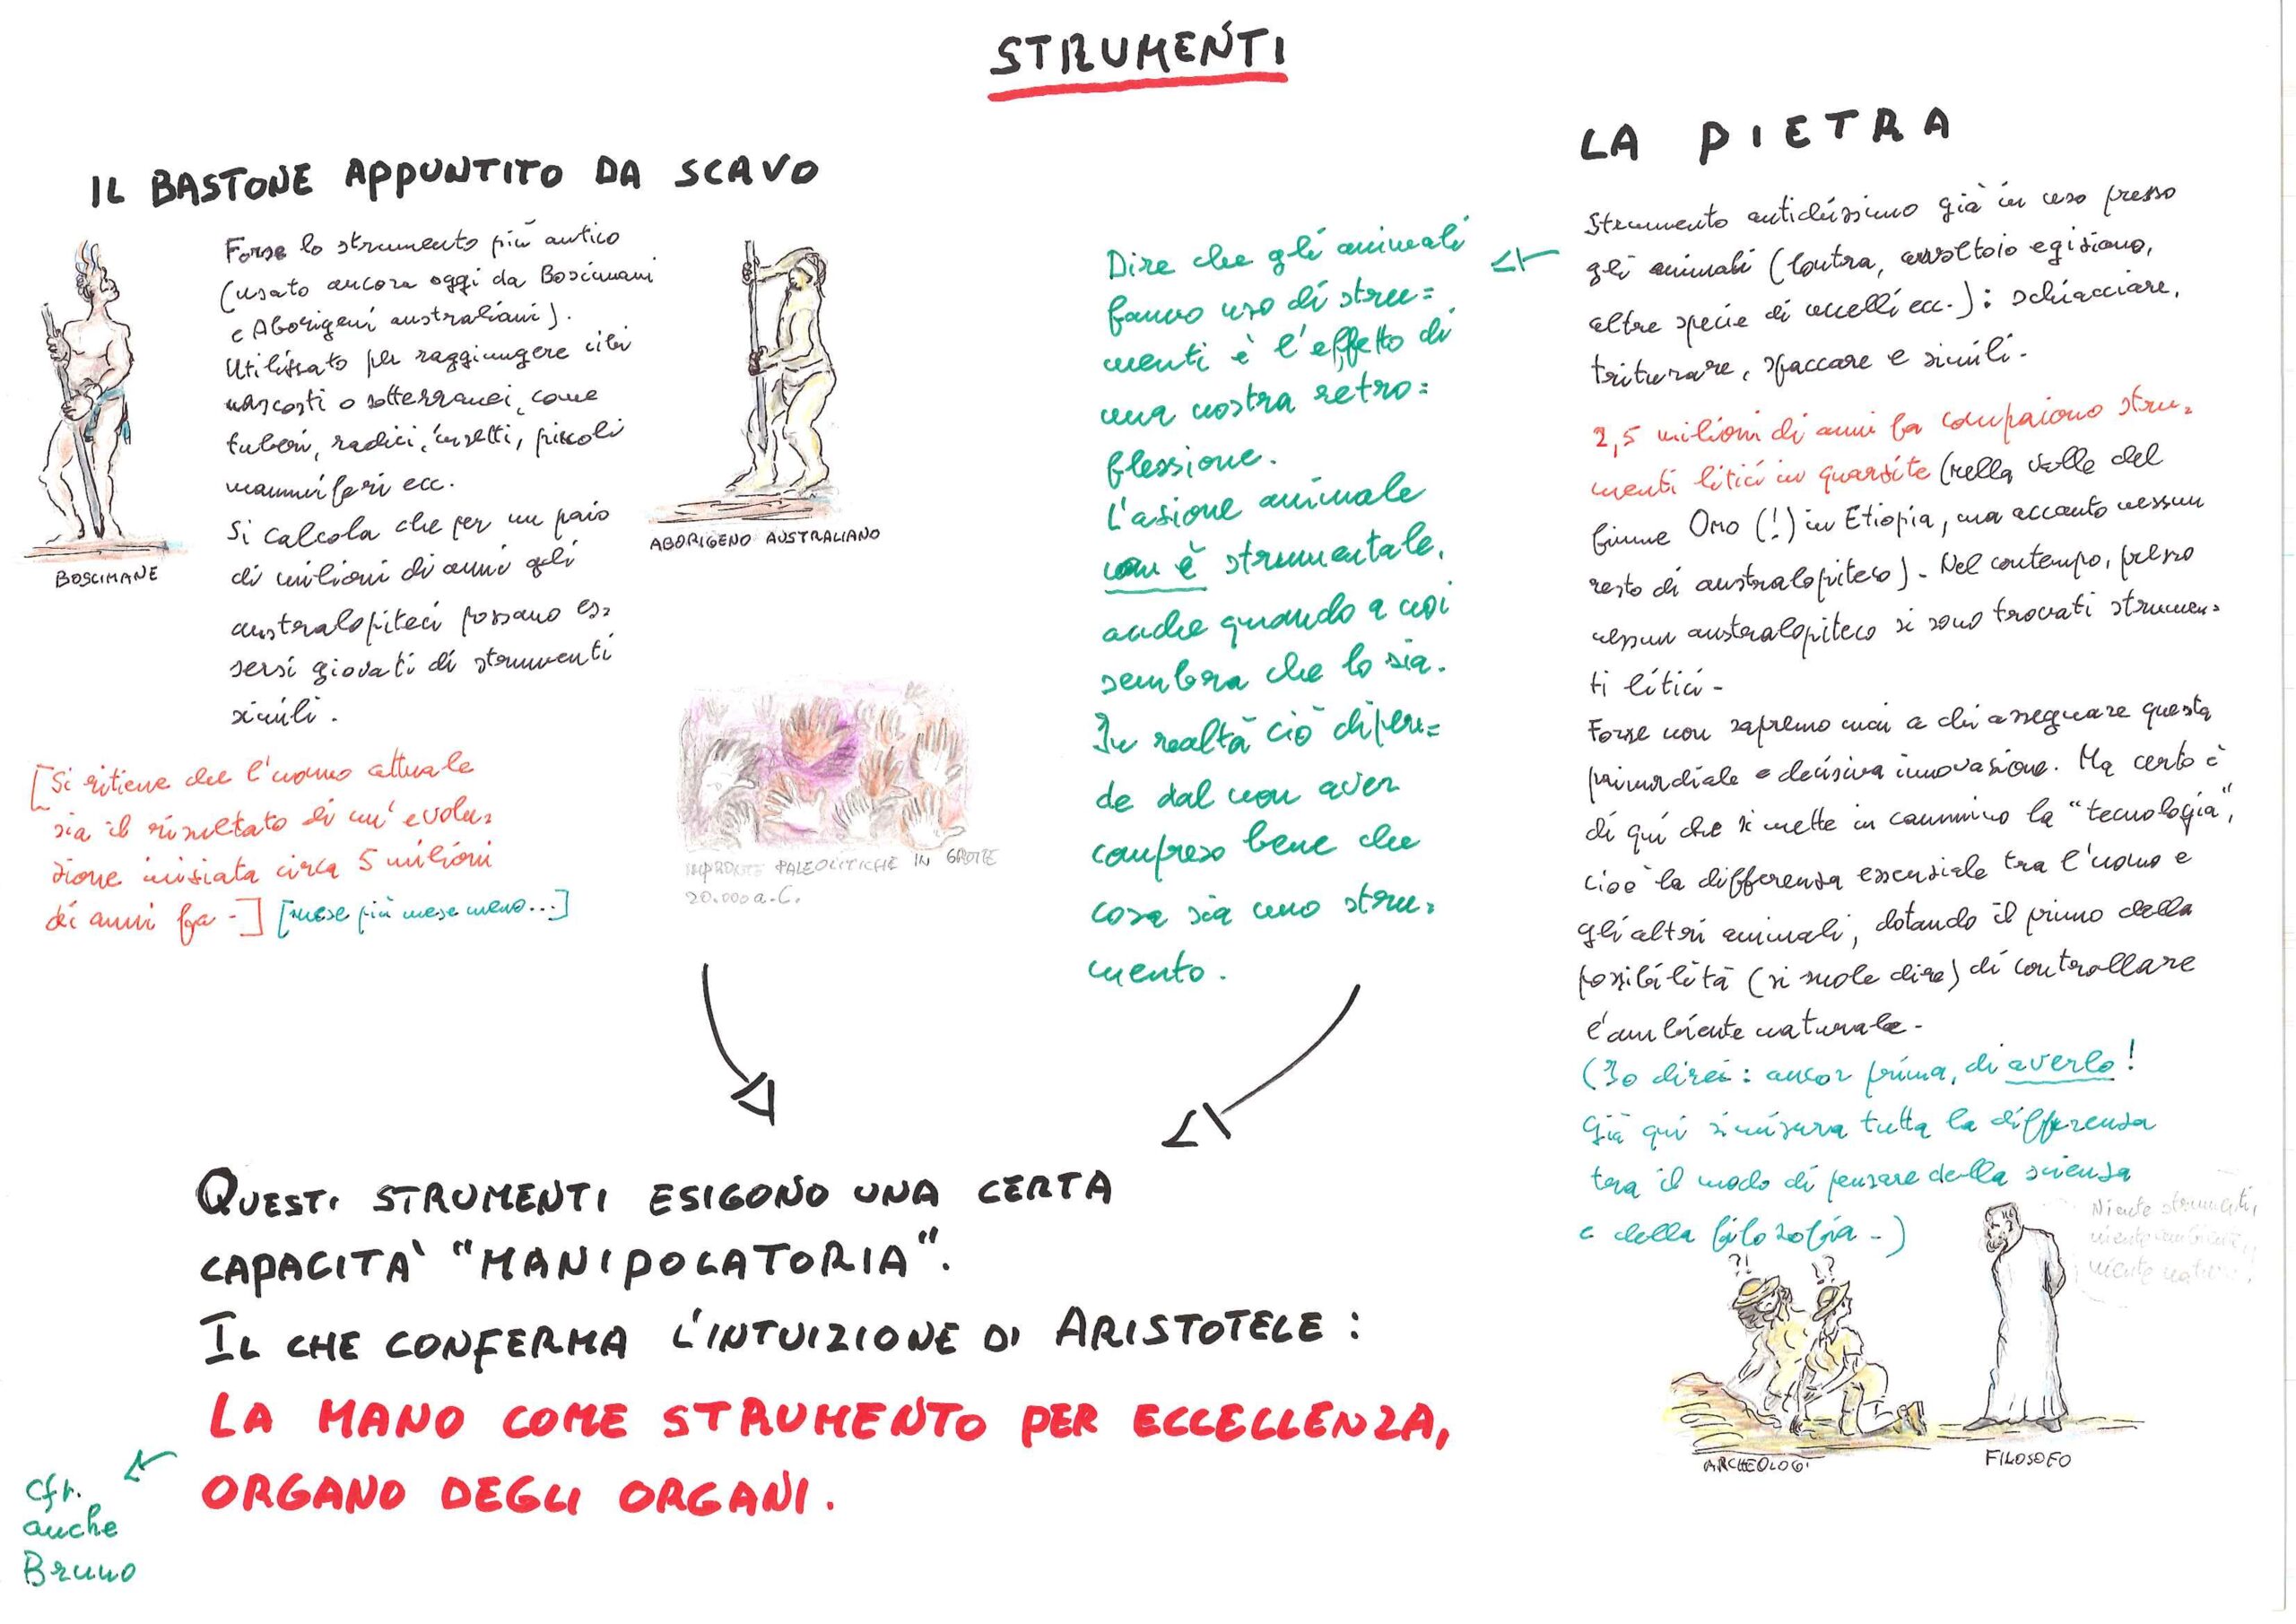 STRUMENTI
IL BASTONE APPUNTITO DA SCAVO
Forse lo strumento più antico
(usato ancora oggi da Boscimani
e Aborigeni australiani).
Utilizzato per raggiungere cibi
nascosti o sotterranei, come
tuberi, radici, insetti, piccoli
mammiferi ecc.
Si calcola che per un paio
di milioni di anni gli
australopiteci possano es=
sersi giovati di strumenti
simili.
BOSCIMANE
ABORIGENO AUSTRALIANO
[Si ritiene che l'uomo attuale
sia il risultato di un'evolu=
zione iniziata circa 5 milioni
di anni fa -] [mese più mese meno...]
IMPRONTE PALEOLITICHE IN GROTTE
20.000 a.C.
Dire che gli animali
fanno uso di stru=
menti è l'effetto di
una nostra retro=
flessione.
L'azione animale
non è strumentale,
anche quando a noi
sembra che lo sia.
In realtà ciò dipen=
de dal non aver
compreso bene che
cosa sia uno stru=
mento.
LA PIETRA
Strumento antichissimo già in uso presso
gli animali (lontra, avvoltoio egiziano,
altre specie di uccelli ecc.): schiacciare,
triturare, spaccare e simili.
2,5 milioni di anni fa compaiono stru=
menti litici in quarzite (nella valle del
fiume Omo (!) in Etiopia, ma accanto nessun
resto di australopiteco). Nel contempo, presso
nessun australopiteco si sono trovati strumen=
ti litici -
Forse non sapremo mai a chi assegnare questa
primordiale e decisiva innovazione. Ma certo è
di qui che si mette in cammino la "tecnologia",
cioè la differenza essenziale tra l'uomo e
gli altri animali, dotando il primo della
possibilità (si suole dire) di controllare
l'ambiente naturale -
(Io direi: ancor prima, di averlo!
Già qui si misura tutta la differenza
tra il modo di pensare della scienza
e della filosofia -)
Niente strumenti,
niente ambiente,
niente natura!
?! ?!
ARCHEOLOGI
FILOSOFO
QUESTI STRUMENTI ESIGONO UNA CERTA
CAPACITÀ "MANIPOLATORIA".
IL CHE CONFERMA L'INTUIZIONE DI ARISTOTELE:
LA MANO COME STRUMENTO PER ECCELLENZA,
ORGANO DEGLI ORGANI.
Cfr.
anche
Bruno